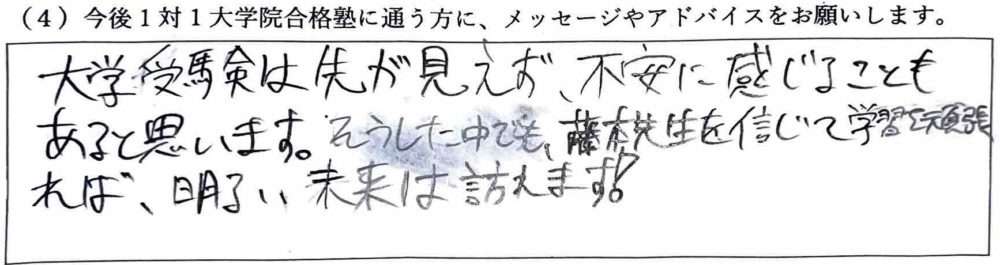 (4)今後1対1大学院合格塾に通う方に、メッセージやアドバイスをお願いします。
大学受験は先が見えず、不安に感じることも
あると思います。そうした中でも、藤本先生を信じて学習を頑張
れば、明るい未来は訪れます!